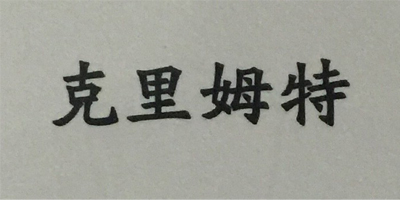 克里姆特